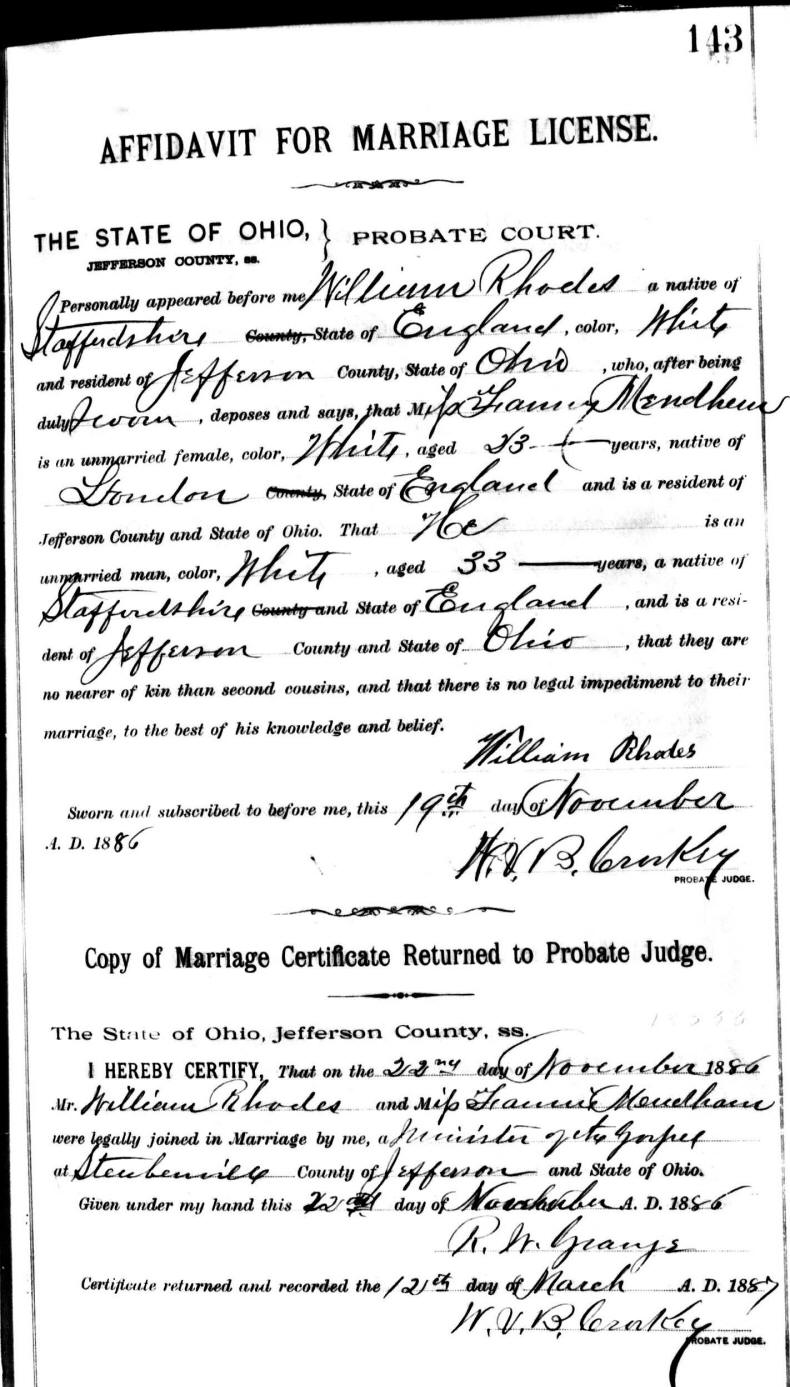 143
AFFIDAVIT FOR MARRIAGE LICENSE.
THE STATE OF OHIO, } PROBATE COURT.
JEFFERSON COUNTY, ss.
Personally appeared before me William Rhodes a native of
Staffordshire County, State of England, color, White
and resident of Jefferson County, State of Ohio, who, after being
duly Sworn, deposes and says, that Miss Fannie Mendham
is an unmarried female, color, White, aged 23 years, native of
London County, State of England and is a resident of
Jefferson County and State of Ohio. That He is an
unmarried man, color, White, aged 33 years, a native of
Staffordshire County and State of England, and is a resi-
dent of Jefferson County and State of Ohio, that they are
no nearer of kin than second cousins, and that there is no legal impediment to their
marriage, to the best of his knowledge and belief.
William Rhodes
Sworn and subscribed to before me, this 19th day of November
A. D. 1886
W. V. B. Croskey
PROBATE JUDGE.
Copy of Marriage Certificate Returned to Probate Judge.
The State of Ohio, Jefferson County, ss.
I HEREBY CERTIFY, That on the 22nd day of November 1886
Mr. William Rhodes and Miss Fannie Mendham
were legally joined in Marriage by me, a Minister of the Gospel
at Steubenville County of Jefferson and State of Ohio.
Given under my hand this 22nd day of November A. D. 1886
R. W. Grange
Certificate returned and recorded the 12th day of March A. D. 1887
W. V. B. Croskey
PROBATE JUDGE.